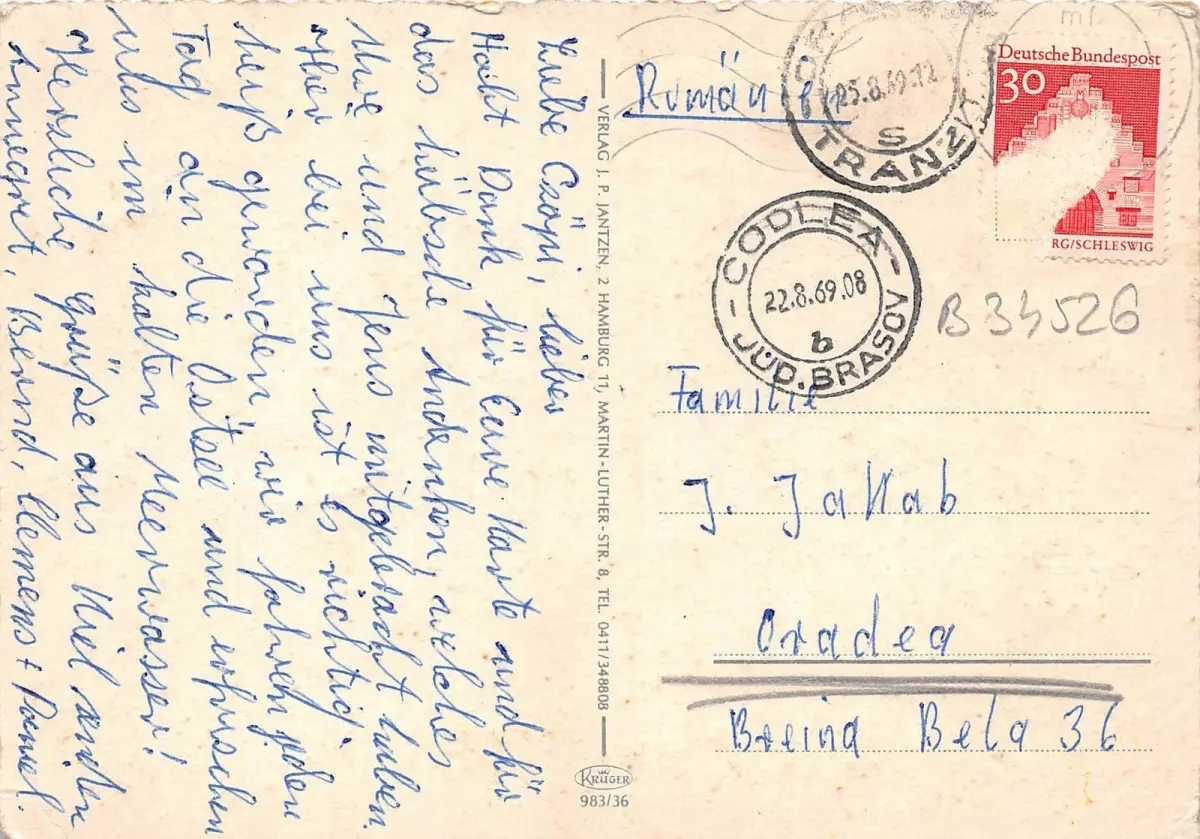 Liebe Csöpi, lieber
Habt Dank für Eure Karte und für
das hübsche Andenken, welches
Ihre und Jens mitgebracht haben.
Hier bei uns ist es richtig
heiß geworden wir fahren jeden
Tag an die Ostsee und erfrischen
uns im kalten Meerwasser!
Herzliche Grüße aus Kiel senden
Annegret, Bernd, Clemens +
VERLAG J. P. JANTZEN, 2 HAMBURG 11, MARTIN-LUTHER-STR. 8, TEL. 0411/348808
KRÜGER
983/36
Rumänien
25.8.69.12
S
TRANZIT
Deutsche Bundespost
30
RG/SCHLESWIG
-CODLEA-
22.8.69.08
b
JUD. BRASOV
B 34526
Familie
J. Jakab
Oradea
Bela 36